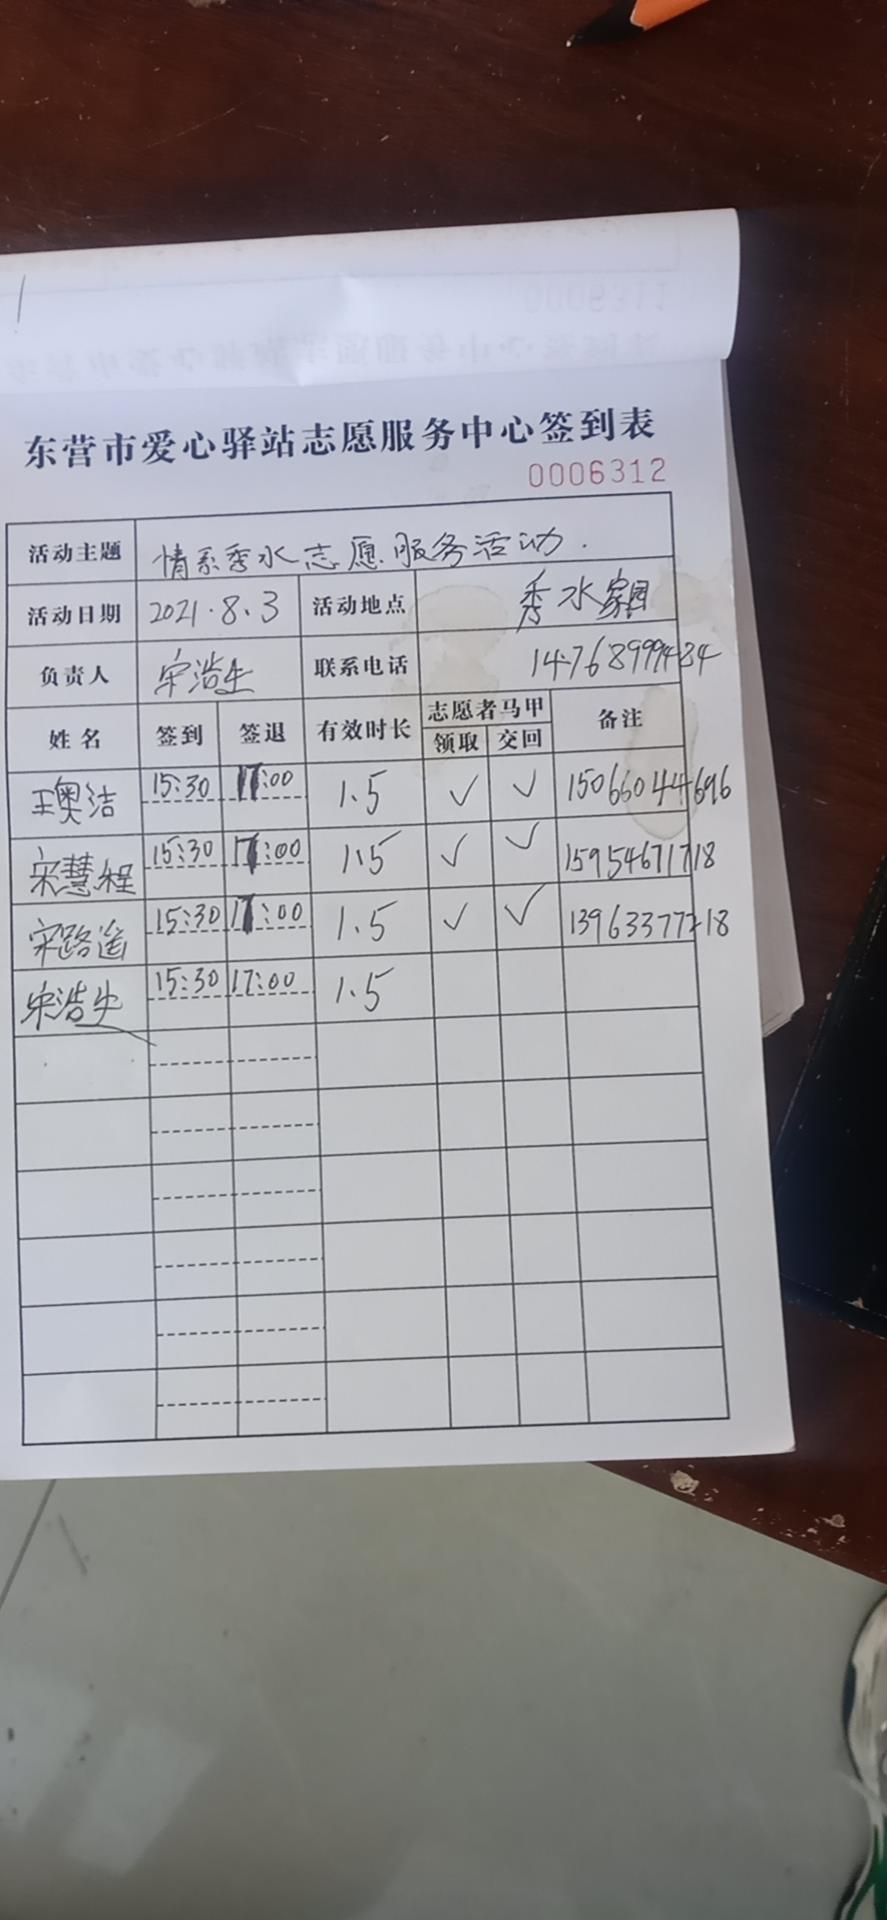 东营市爱心驿站志愿服务中心签到表
0006312
活动主题 情系秀水志愿服务活动.
活动日期 2021.8.3 活动地点 秀水家园
负责人 宋浩生 联系电话 14768999484
姓名 签到 签退 有效时长 志愿者马甲 备注
领取 交回
王奥洁 15:30 17:00 1.5 ✓ ✓ 15066044696
宋慧程 15:30 17:00 1.5 ✓ ✓ 15954671718
宋路遥 15:30 17:00 1.5 ✓ ✓ 13963377218
宋浩生 15:30 17:00 1.5